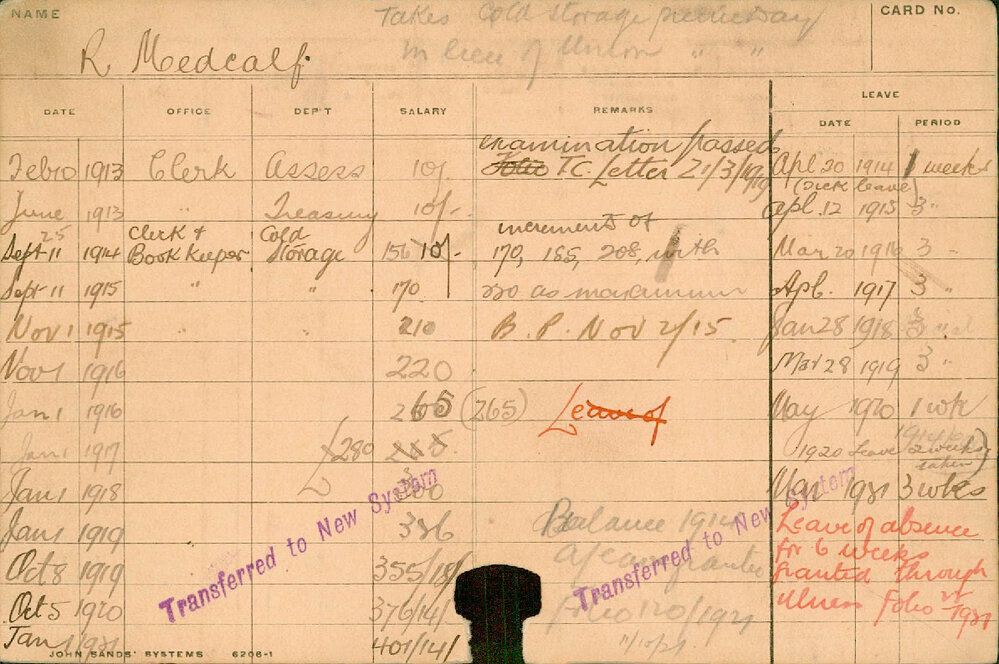 NAME
Takes Cold Storage
in lieu of Union " "
CARD No.
R. Medcalf.
LEAVE
DATE OFFICE DEP'T SALARY REMARKS DATE PERIOD
examination passed
Feb 10 1913 Clerk Assess 10/- T.C. Letter 21/3/1919 Apl 20 1914 1 week
(Sick leave)
June 1913 " Treasury 10/- Apl. 12 1915 3 "
25 Clerk & Cold increments of
Sept 11 1914 Book Keeper Storage 156 10/- 170, 185, 208, with Mar 20 1916 3 "
Sept 11 1915 " " 170 220 as maximum Apl. 1917 3 "
Nov 1 1915 " " 210 B.P. Nov 2/15. Jan 28 1918 3
Nov 1 1916 220 Mar 28 1919 3 "
Jan 1 1916 265 (265) Leave of May 1920 1 wk
Jan 1 1917 £280 1920 Leave 2 weeks taken)
Jan 1 1918 300 Mar 1921 3 wks
Transferred to New System
Transferred to New System
Jan 1 1919 336 Balance 1914 Leave of absence
for 6 weeks
Oct 8 1919 355/18/ granted through
Oct 5 1920 376/14/ folio 120/1921 illness folio 1921
Jan 1 1921 401/14/ 11/10/21
JOHN SANDS' SYSTEMS 6206-1